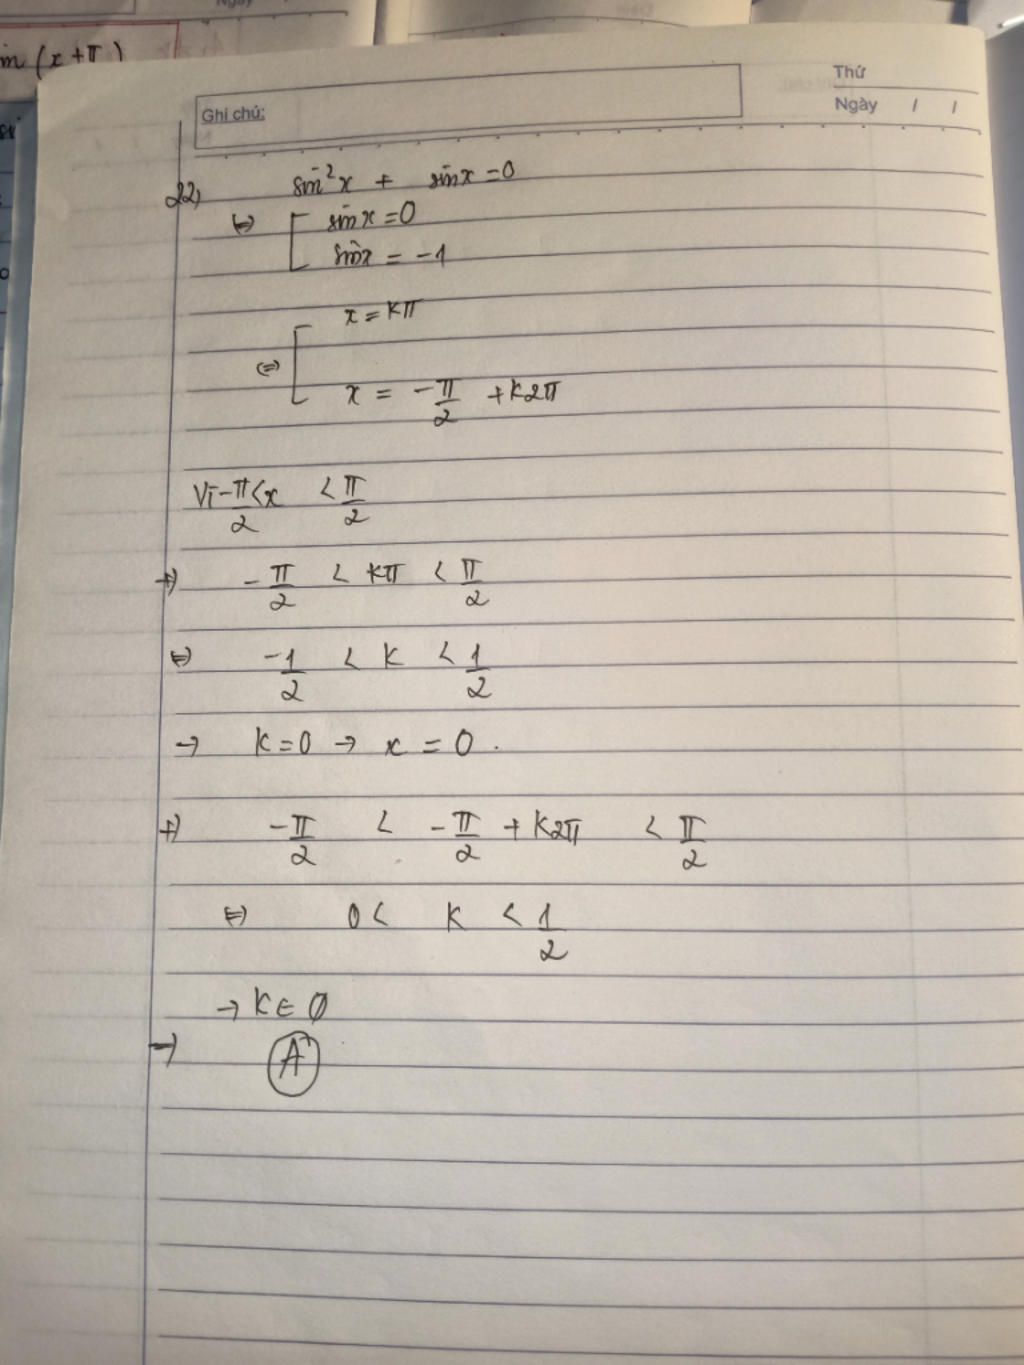 Ngày
in (x+π)
Ghi chú:
Thứ
Ngày / /
22, sin²x + sinx = 0
⇔ [ sinx = 0
sinx = -1
⇔ [ x = kπ
x = -π/2 + k2π
Vì -π/2 < x < π/2
+) -π/2 < kπ < π/2
⇔ -1/2 < k < 1/2
→ k = 0 → x = 0.
+) -π/2 < -π/2 + k2π < π/2
⇔ 0 < k < 1/2
→ k ∈ ∅
→ A